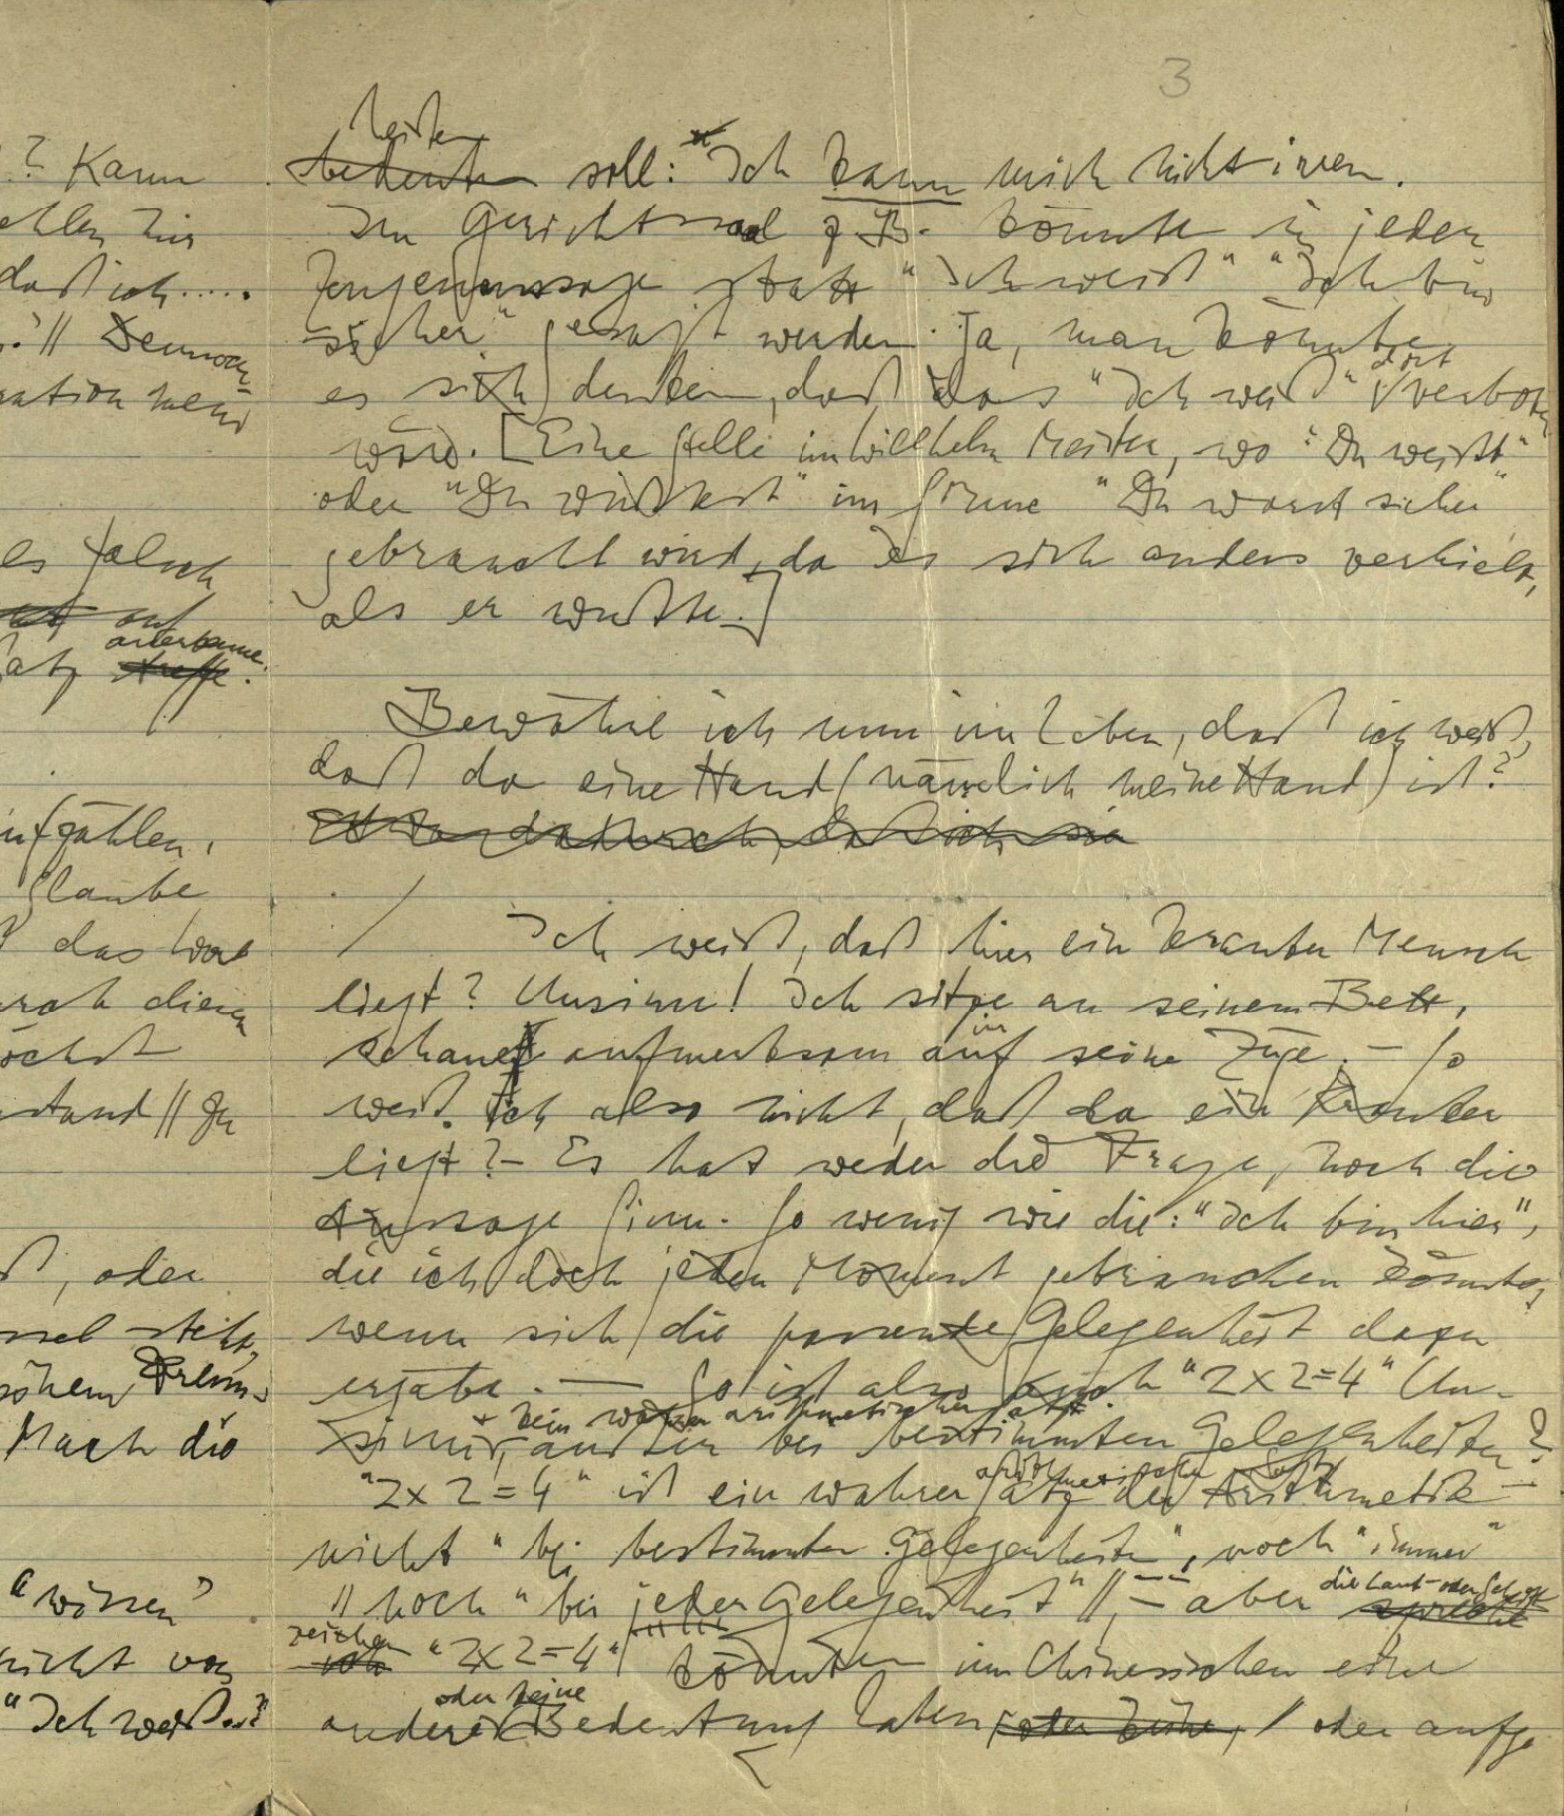 ? Kann
daß ich.....
" // Dennoch
ration mein
es falsch
auf
ankomme.
atz treffe.
ufzählen,
Glaube
das Wort
diesen
öchst
stand //
ß, oder
ssel steht,
Mach die
"wissen"
nicht von
"Ich weiß..."
3
leisten
bedeuten soll: Ich kann mich nicht irren.
Im Gerichtssaal z.B. könnte in jeder
Zeugenaussage statt "Ich weiß" "Ich bin
sicher" gesagt werden. Ja, man könnte
es sich denken, daß das "Ich weiß" dort verboten
wäre. [Eine Stelle im Wilhelm Meister, wo "Du weißt"
oder "Du wußtest" im Sinne "Du warst sicher"
gebraucht wird, da es sich anders verhielt,
als er wußte.]
Bewähre ich nun im Leben, daß ich weiß,
daß da eine Hand (nämlich meine Hand) ist?
dadurch, daß ich sie
/ Ich weiß, daß hier ein kranker Mensch
liegt? Unsinn! Ich sitze an seinem Bett,
in
schaue aufmerksam auf seine Züge. – So
weiß ich also nicht, daß da ein Kranker
liegt? – Es hat weder die Frage, noch die
Aussage Sinn. So wenig wie die: "Ich bin hier",
die ich doch jeden Moment gebrauchen könnte,
wenn sich die passende Gelegenheit dazu
ergäbe. — So ist also auch "2x2=4" Un-
+ kein wahrer arithmetischer Satz
sinn, außer bei bestimmten Gelegenheiten?
arithmetischer Satz
"2x2=4" ist ein wahrer Satz der Arithmetik –
nicht "bei bestimmten Gelegenheiten", noch "immer"
// noch "bei jeder Gelegenheit" //, – aber die Laut- oder Schrift-
zeichen "2x2=4" könnten im Chinesischen eine
oder keine
andere Bedeutung haben, oder keine, // oder aufge